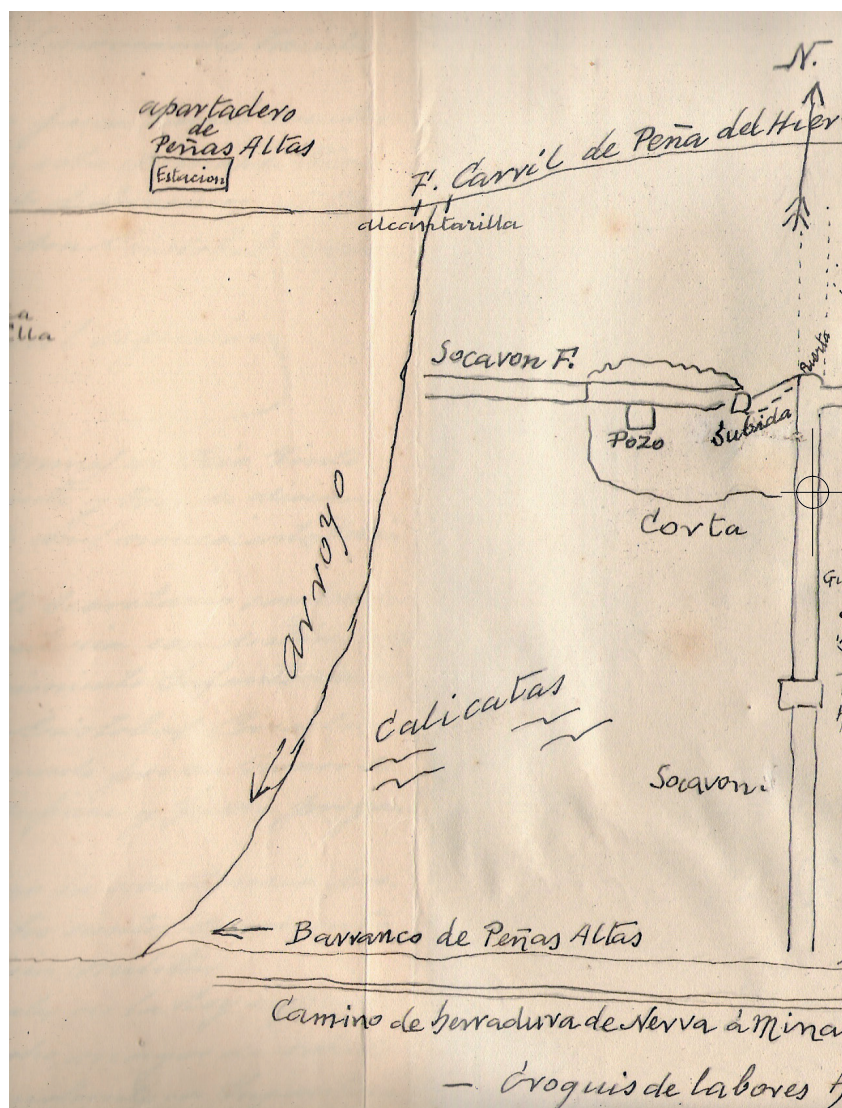 N.
apartadero
de
Peñas Altas
Estacion
F. Carril de Peña del Hier
alcantarilla
La
ella
Socavon F.
Puerta
Pozo
Subida
Corta
arroyo
Gu
Calicatas
Socavon
Barranco de Peñas Altas
Camino de herradura de Nerva á Mina
— Croquis de labores